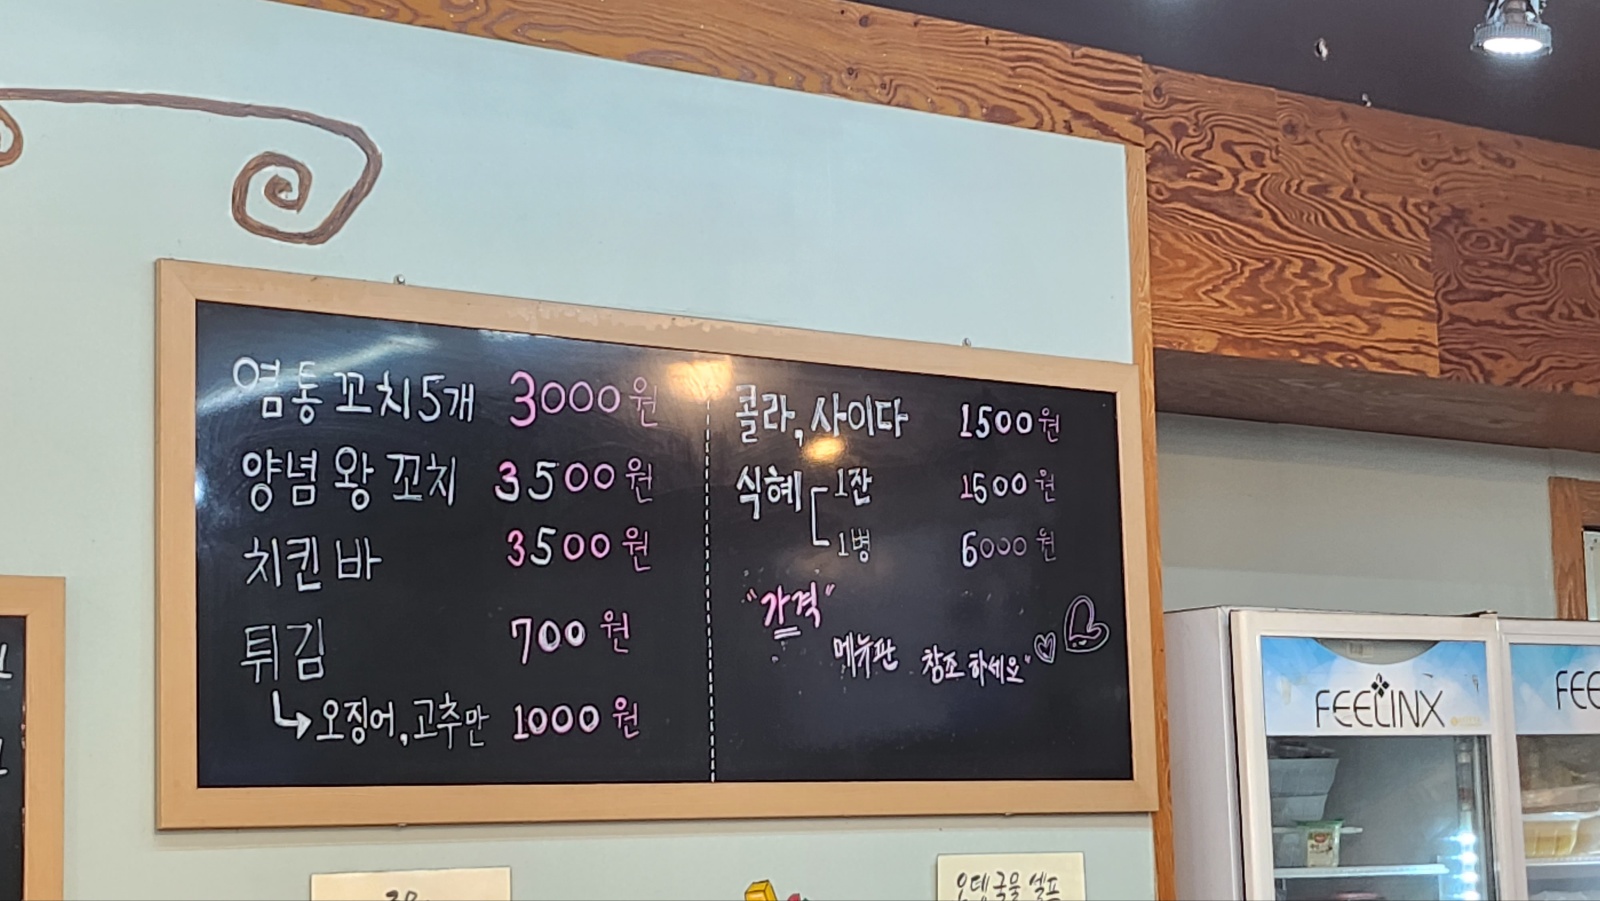 염통 꼬치 5개 3000원
양념 왕 꼬치 3500원
치킨 바 3500원
튀김 700원
오징어, 고추만 1000원
콜라, 사이다 1500원
식혜 1잔 1500원
1병 6000원
"가격"
메뉴판 참조하세요"
FEELINX
FEE
오뎅국물 셀프